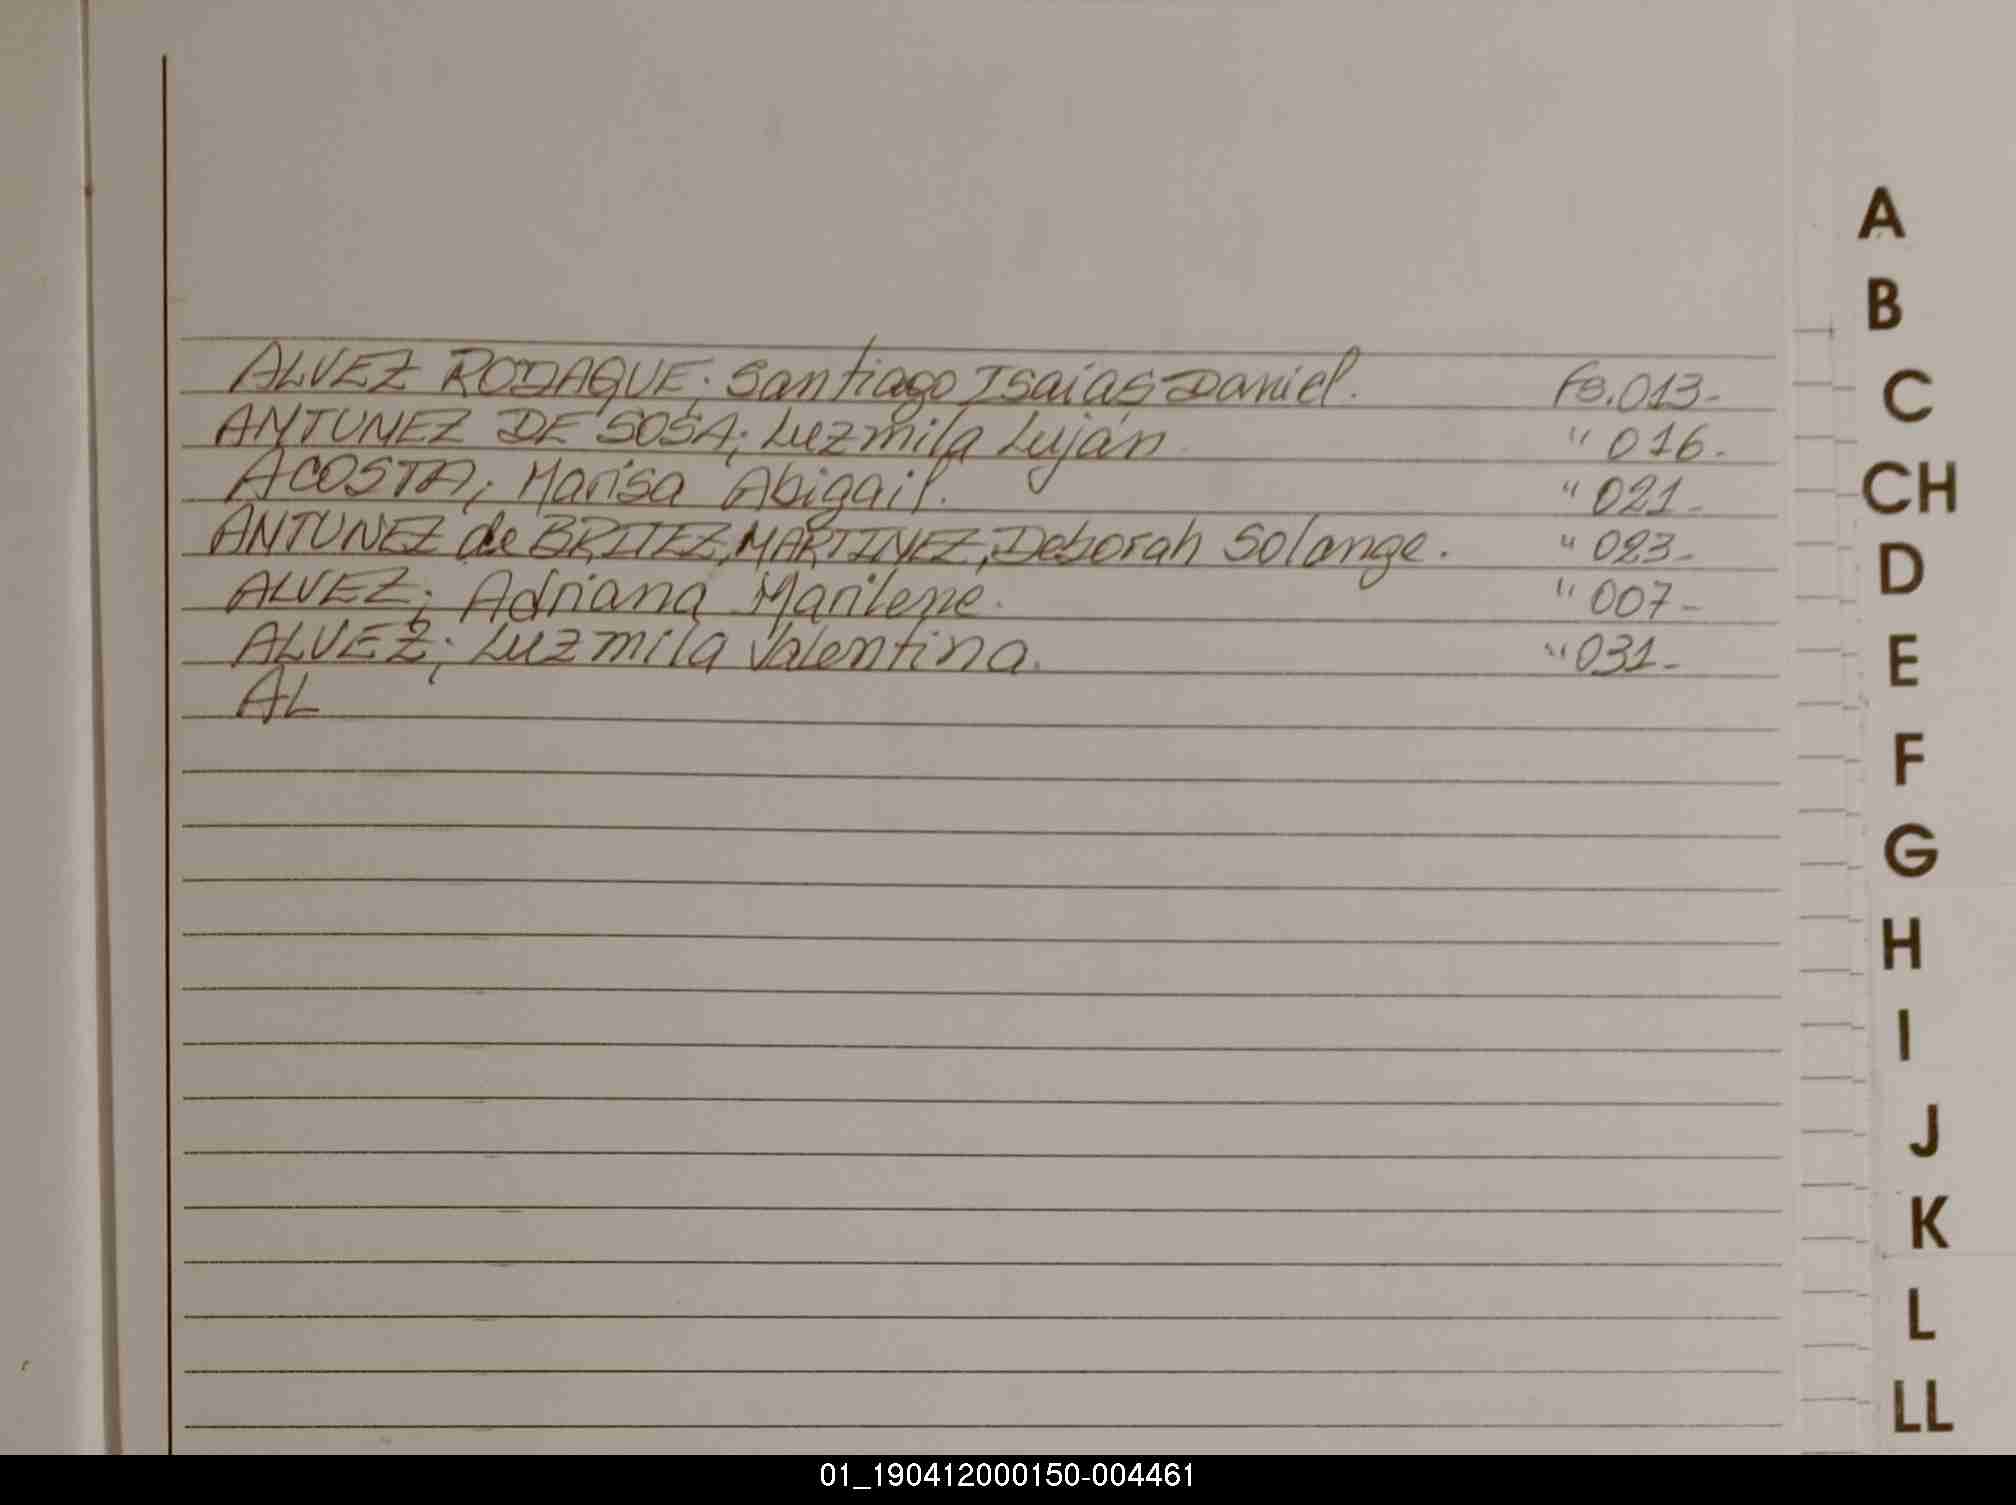 ALVEZ RODAQUE; Santiago Isaías Daniel. Fs. 013-
ANTUNEZ DE SOSA; Luzmila Luján " 016-
ACOSTA; Marisa Abigail. " 021-
ANTUNEZ de BRITEZ, MARTINEZ, Deborah Solange. " 023-
ALVEZ; Adriana Marilene. " 007-
ALVEZ; Luzmila Valentina. " 031-
AL
A
B
C
CH
D
E
F
G
H
I
J
K
L
LL
01_190412000150-004461